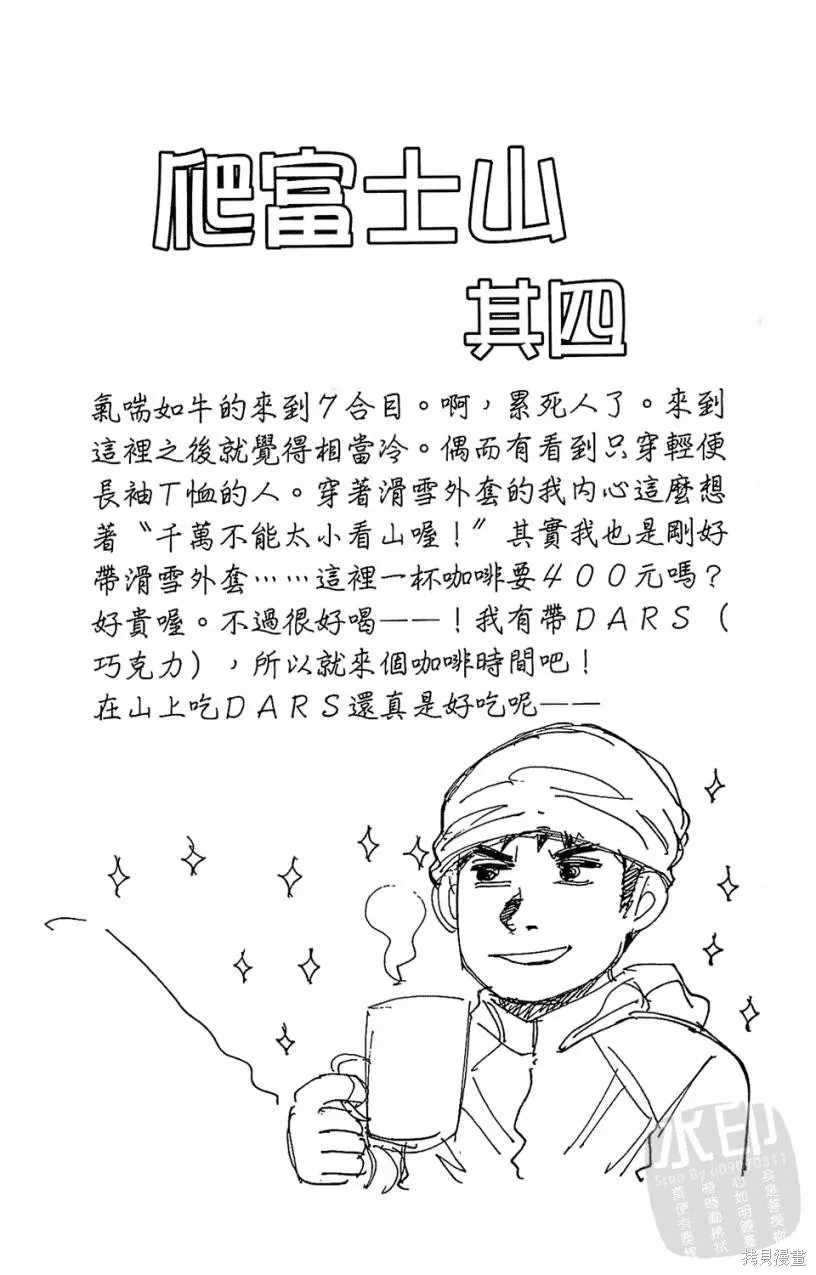 爬富士山
其四
氣喘如牛的來到7合目。啊，累死人了。來到
這裡之後就覺得相當冷。偶而有看到只穿輕便
長袖T恤的人。穿著滑雪外套的我內心這麼想
著〝千萬不能太小看山喔！〞其實我也是剛好
帶滑雪外套……這裡一杯咖啡要400元嗎？
好貴喔。不過很好喝——！我有帶DARS（
巧克力），所以就來個咖啡時間吧！
在山上吃DARS還真是好吃呢——
水印
Scan By a09070811
身是菩提樹
心如明鏡臺
時時勤拂拭
莫使有塵埃
拷貝漫畫